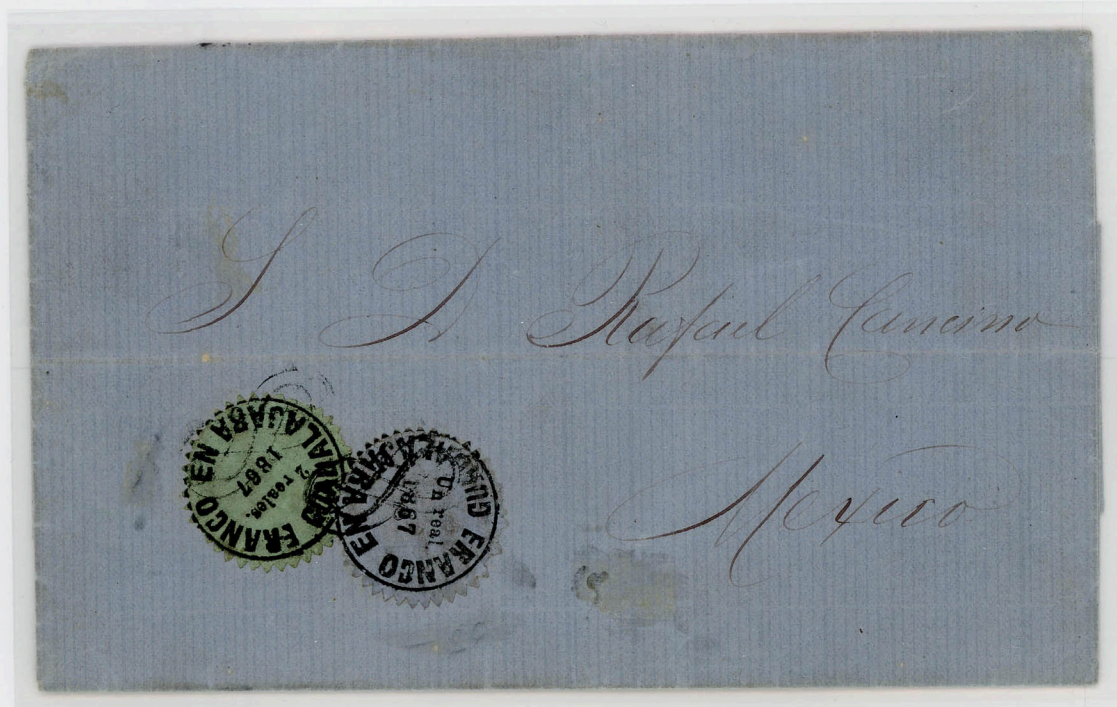 S D Rafael Cancino
Mexico
FRANCO EN GUADALAJARA
2 reales.
1867
FRANCO EN GUADALAJARA
Un real
1867